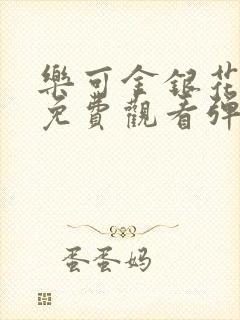 樂可金銀花
免費觀看彈
蛋蛋妈